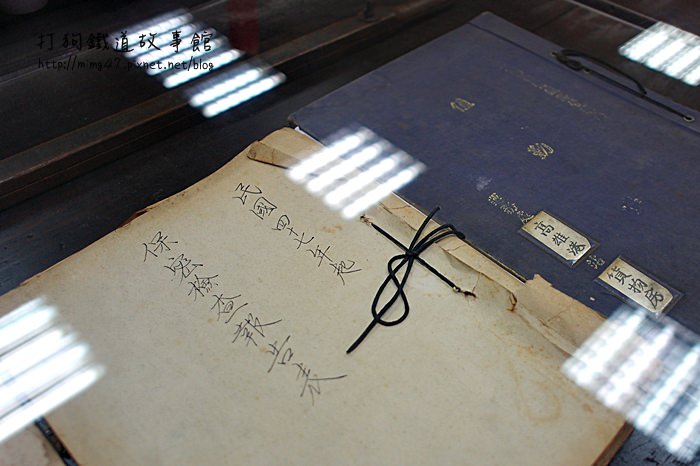 打狗鐵道故事館
http://mimg47.pixnet.net/blog
民國四十七年起
保密檢查報告表
值勤
高雄港
站
貨物房